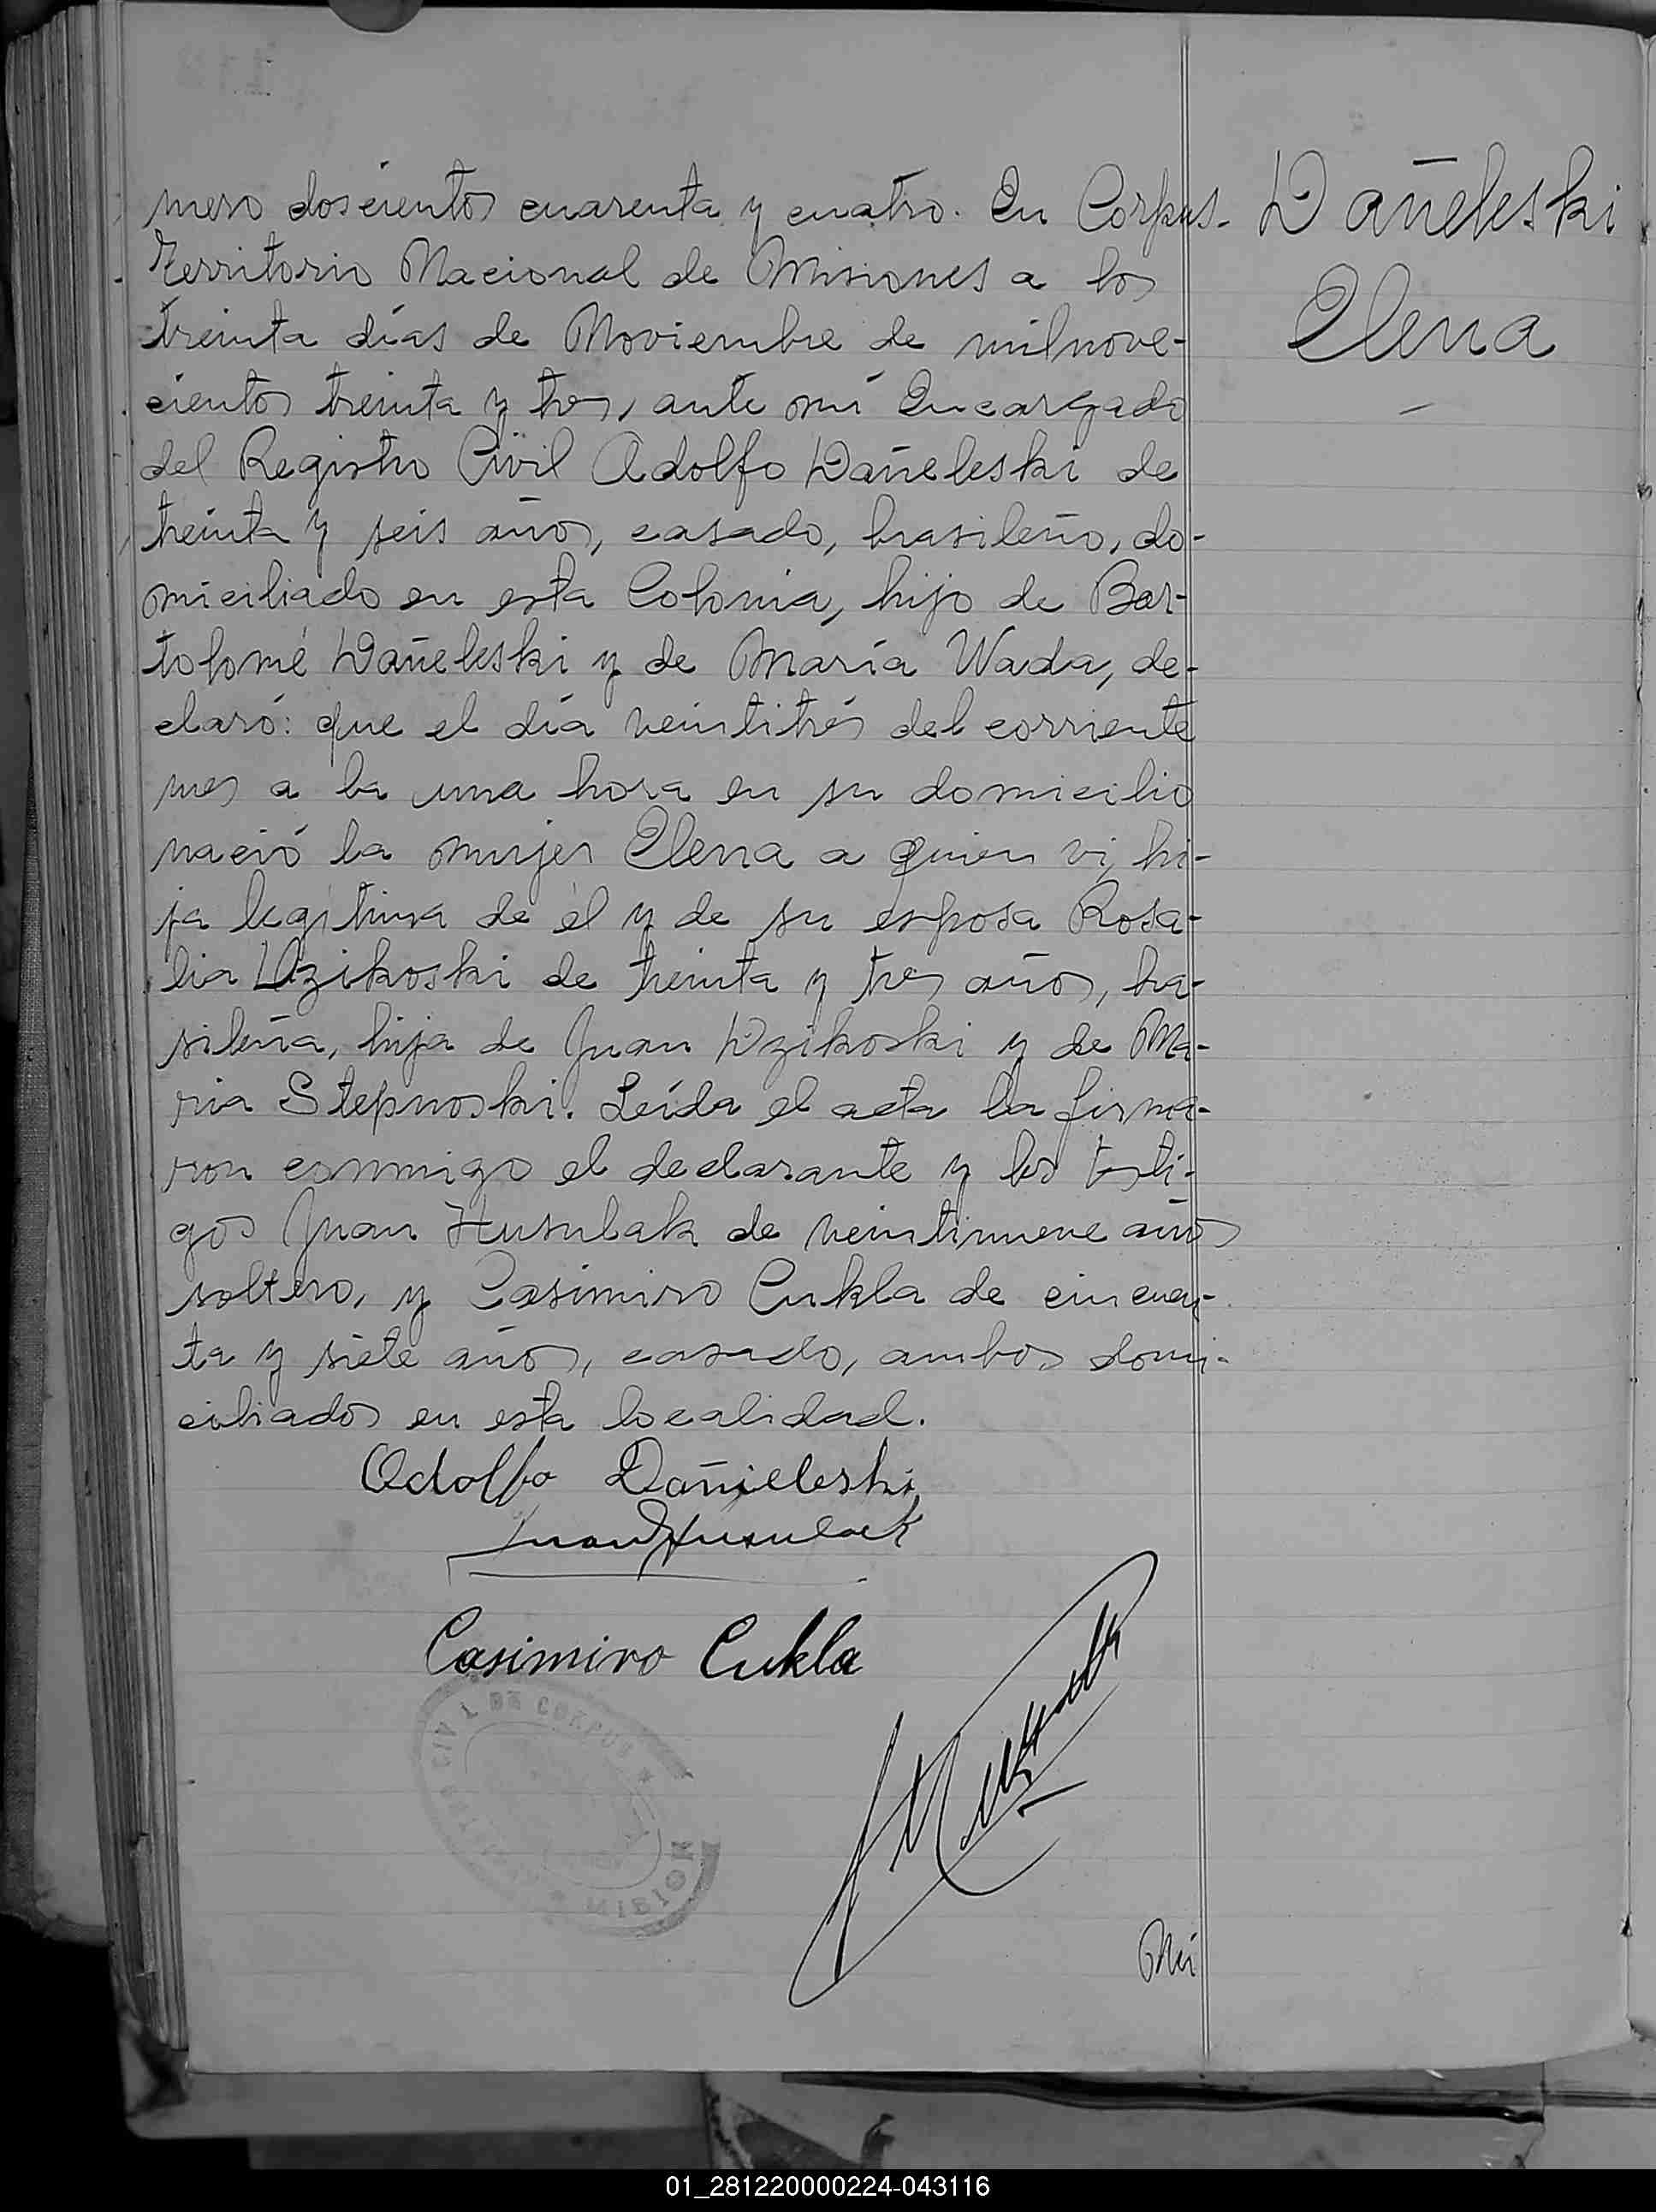 mero doscientos cuarenta y cuatro. En Corpus-
Territorio Nacional de Misiones a los
treinta días de Noviembre de milnove-
cientos treinta y tres, ante mí Encargado
del Registro Civil Adolfo Dañeleski de
treinta y seis años, casado, brasileño, do-
miciliado en esta Colonia, hijo de Bar-
tolomé Dañeleski y de María Wada, de-
claró: que el día veintitrés del corriente
mes a la una hora en su domicilio
nació la mujer Elena a quien vi, hi-
ja legítima de él y de su esposa Rosa-
lia Dzikoski de treinta y tres años, bra-
sileña, hija de Juan Dzikoski y de Ma-
ria Stepnoski. Leída el acta la firma-
ron conmigo el declarante y los testi-
gos Juan Husulak de veintinueve años
soltero, y Casimiro Cukla de cincuen-
ta y siete años, casado, ambos domi-
ciliados en esta localidad.
Dañeleski
Elena
Adolfo Dañieleski
Juan Husulack
Casimiro Cukla
CIVIL DE CORPUS *
MISION
Nú
01_281220000224-043116